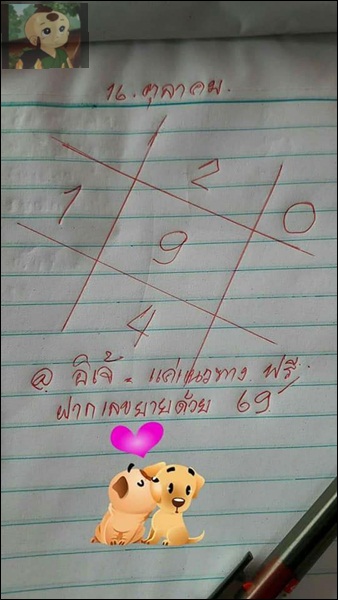 16. ตุลาคม.
2
1
0
9
4
@ อีเจ้ . แค่แนวทาง ฟรี.
ฝากเลขยายด้วย 69